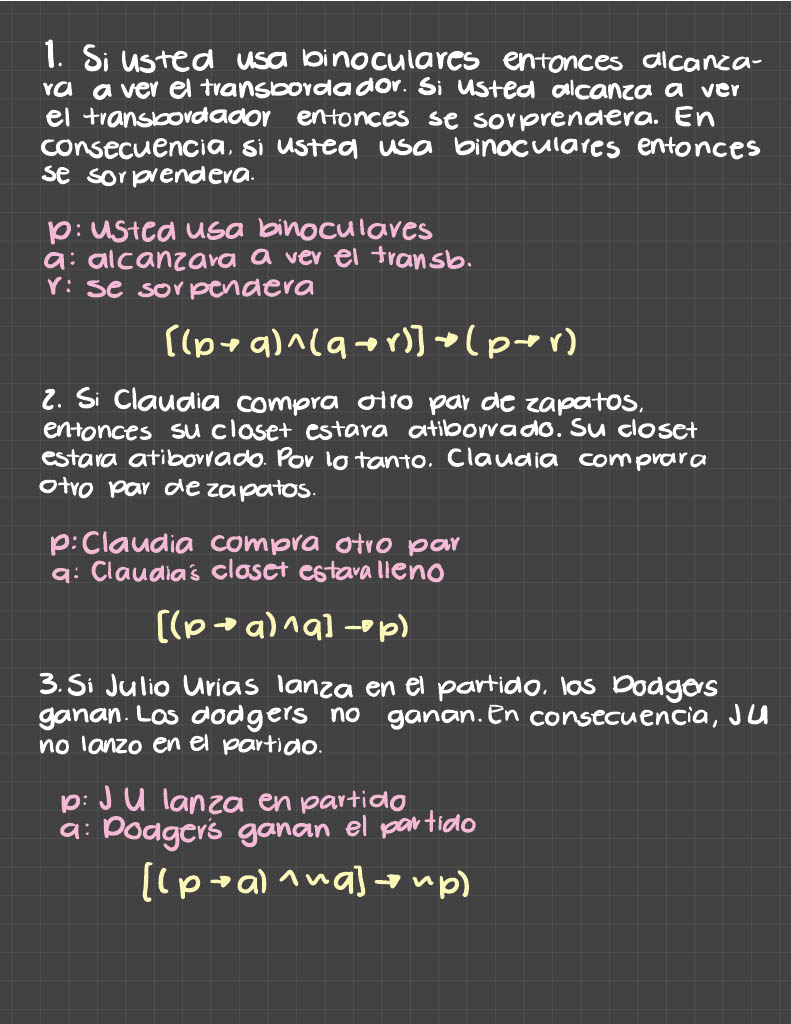 1. Si usted usa binoculares entonces alcanza-
ra a ver el transbordador. Si usted alcanza a ver
el transbordador entonces se sorprendera. En
consecuencia, si usted usa binoculares entonces
se sorprendera.
p: usted usa binoculares
q: alcanzara a ver el transb.
r: se sorpendera
[(p→q)^(q→r)]→(p→r)
2. Si Claudia compra otro par de zapatos,
entonces su closet estara atiborrado. Su closet
estara atiborrado. Por lo tanto, Claudia comprara
otro par de zapatos.
p: Claudia compra otro par
q: Claudia's closet estara lleno
[(p→q)^q]→p)
3. Si Julio Urias lanza en el partido, los Dodgers
ganan. Los dodgers no ganan. En consecuencia, JU
no lanzo en el partido.
p: JU lanza en partido
q: Dodger's ganan el partido
[(p→q)^~q]→~p)